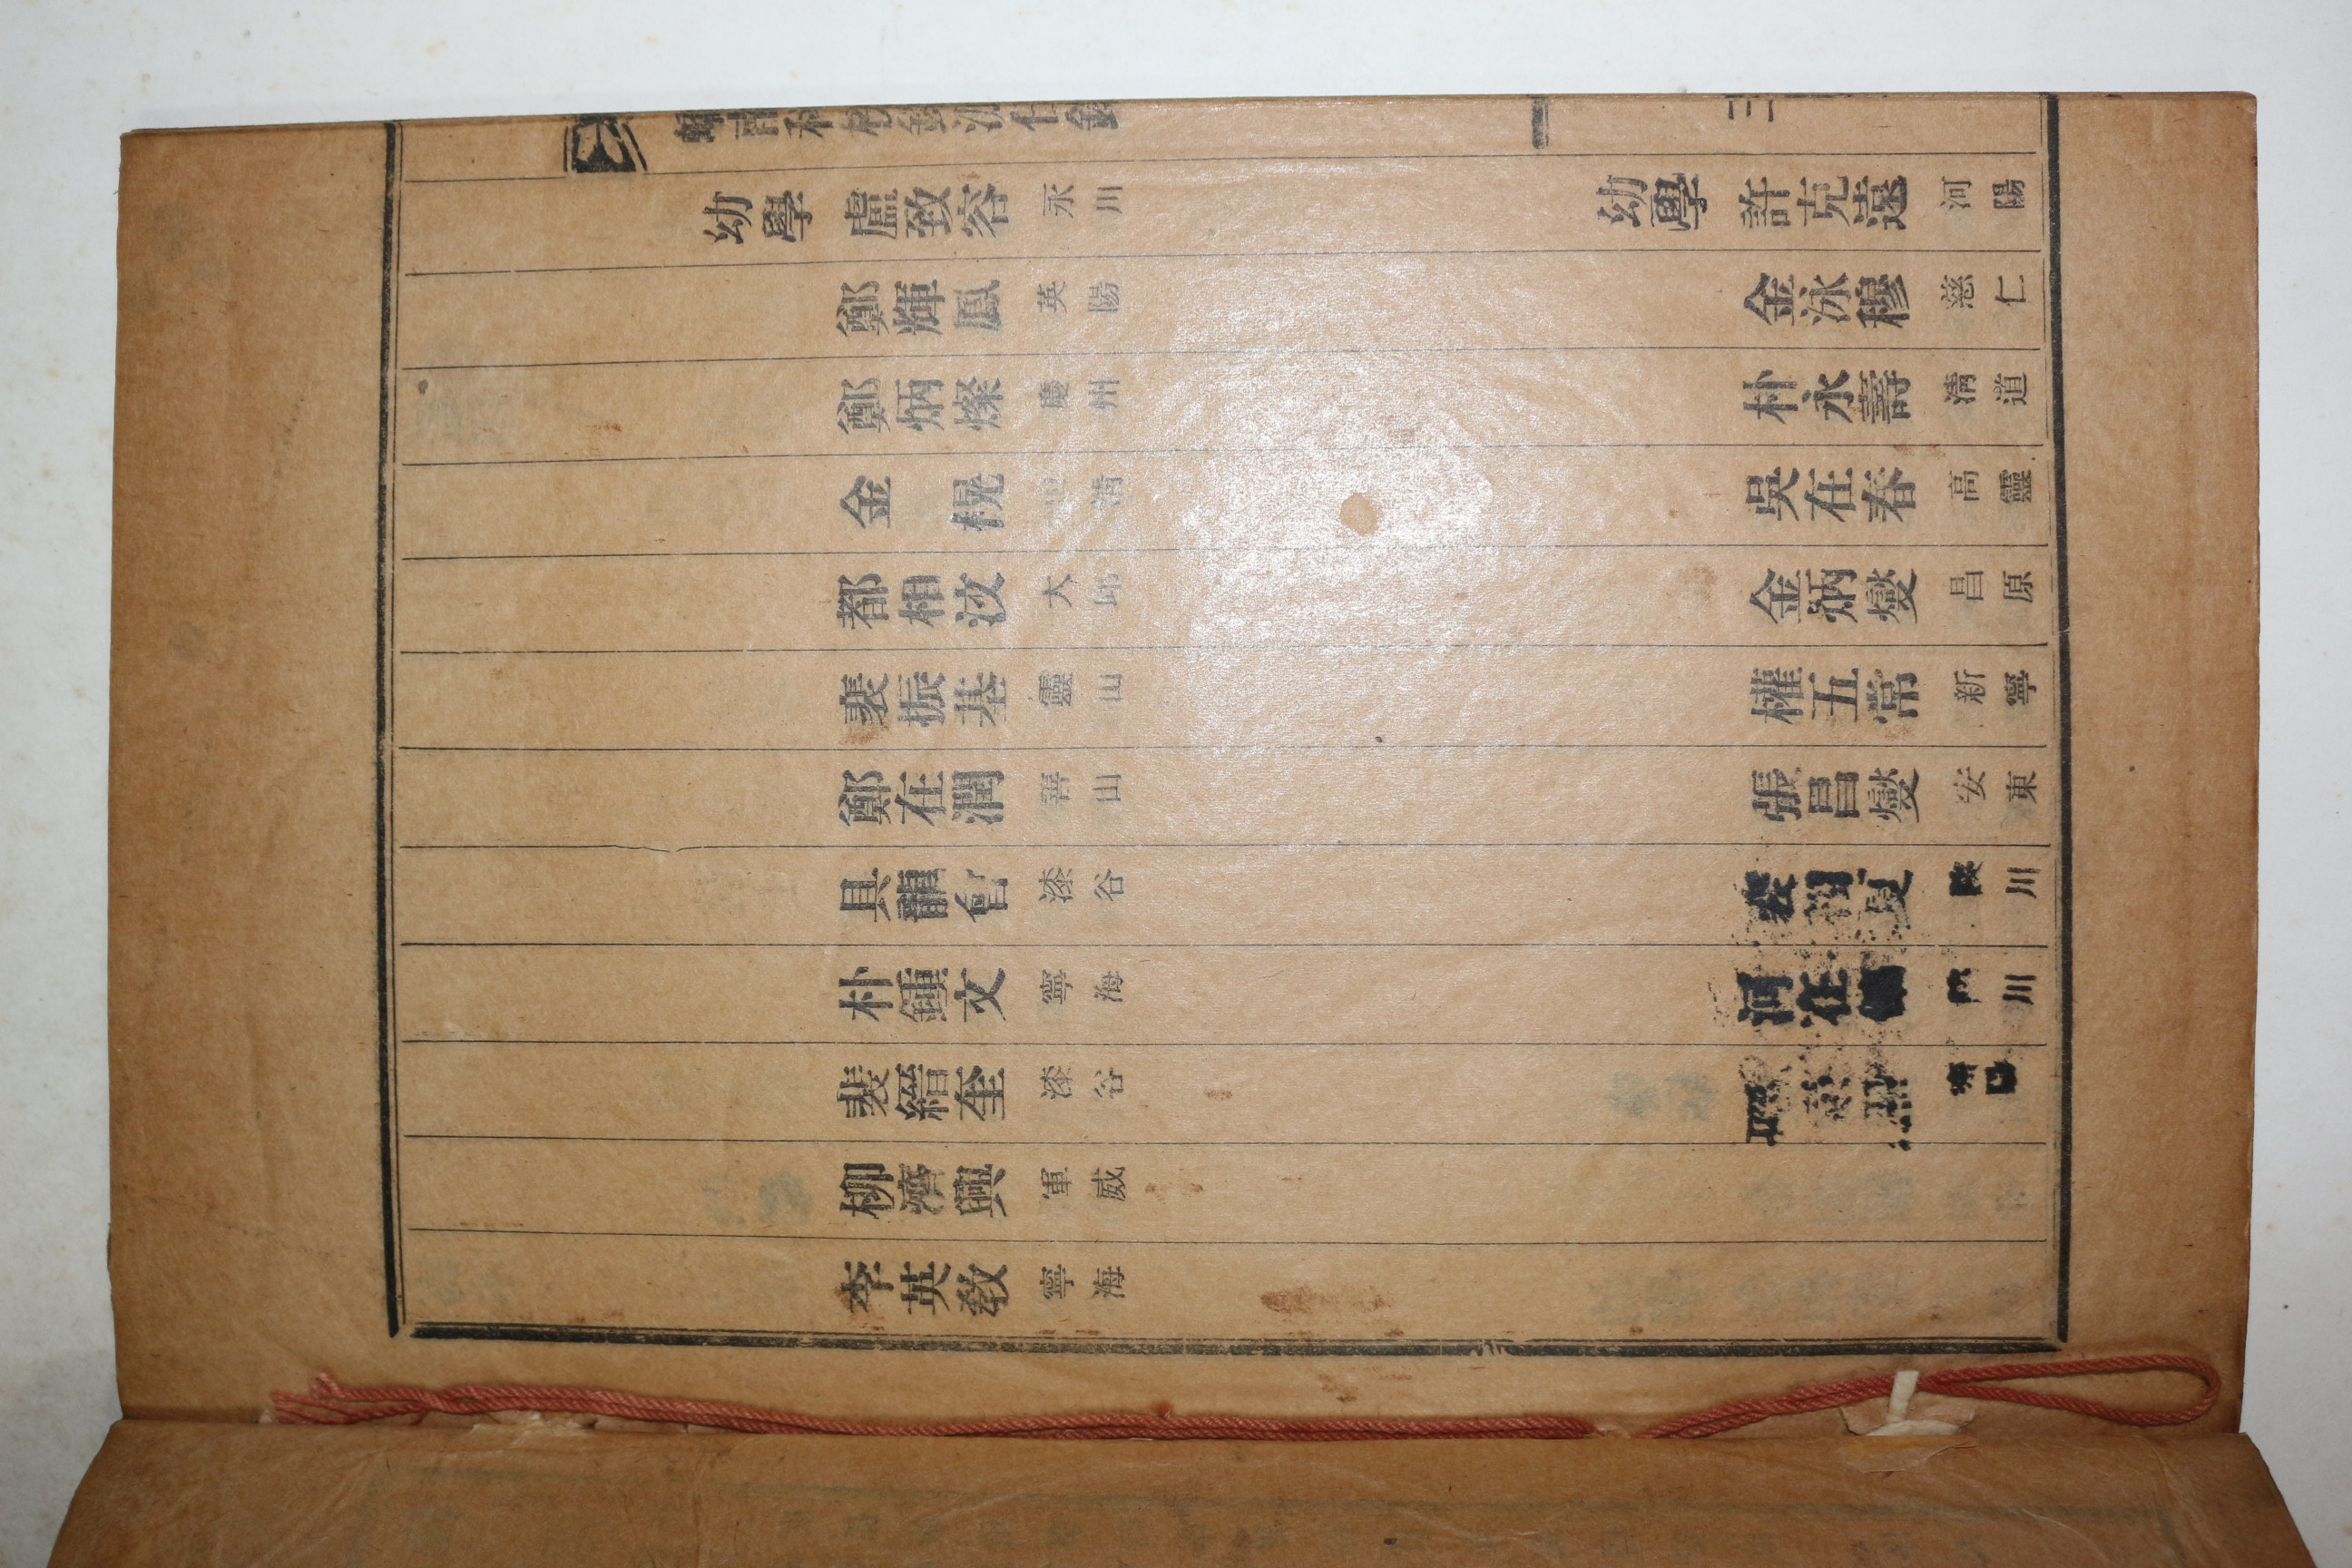 幼學 盧致容 永川 幼學 許克遠 河陽
鄭輝鳳 英陽 金泳穆 慈仁
鄭炳燦 慶州 朴永壽 淸道
金 榥 吳在春 高靈
都相汶 大邱 金炳燮 昌原
裴振基 靈山 權五常 新寧
鄭在潤 善山 張昌燮 安東
具龍會 漆谷 川
朴鍾文 寧海 河在 川
裴縉奎 漆谷
柳濟興 軍威
李英敎 寧海